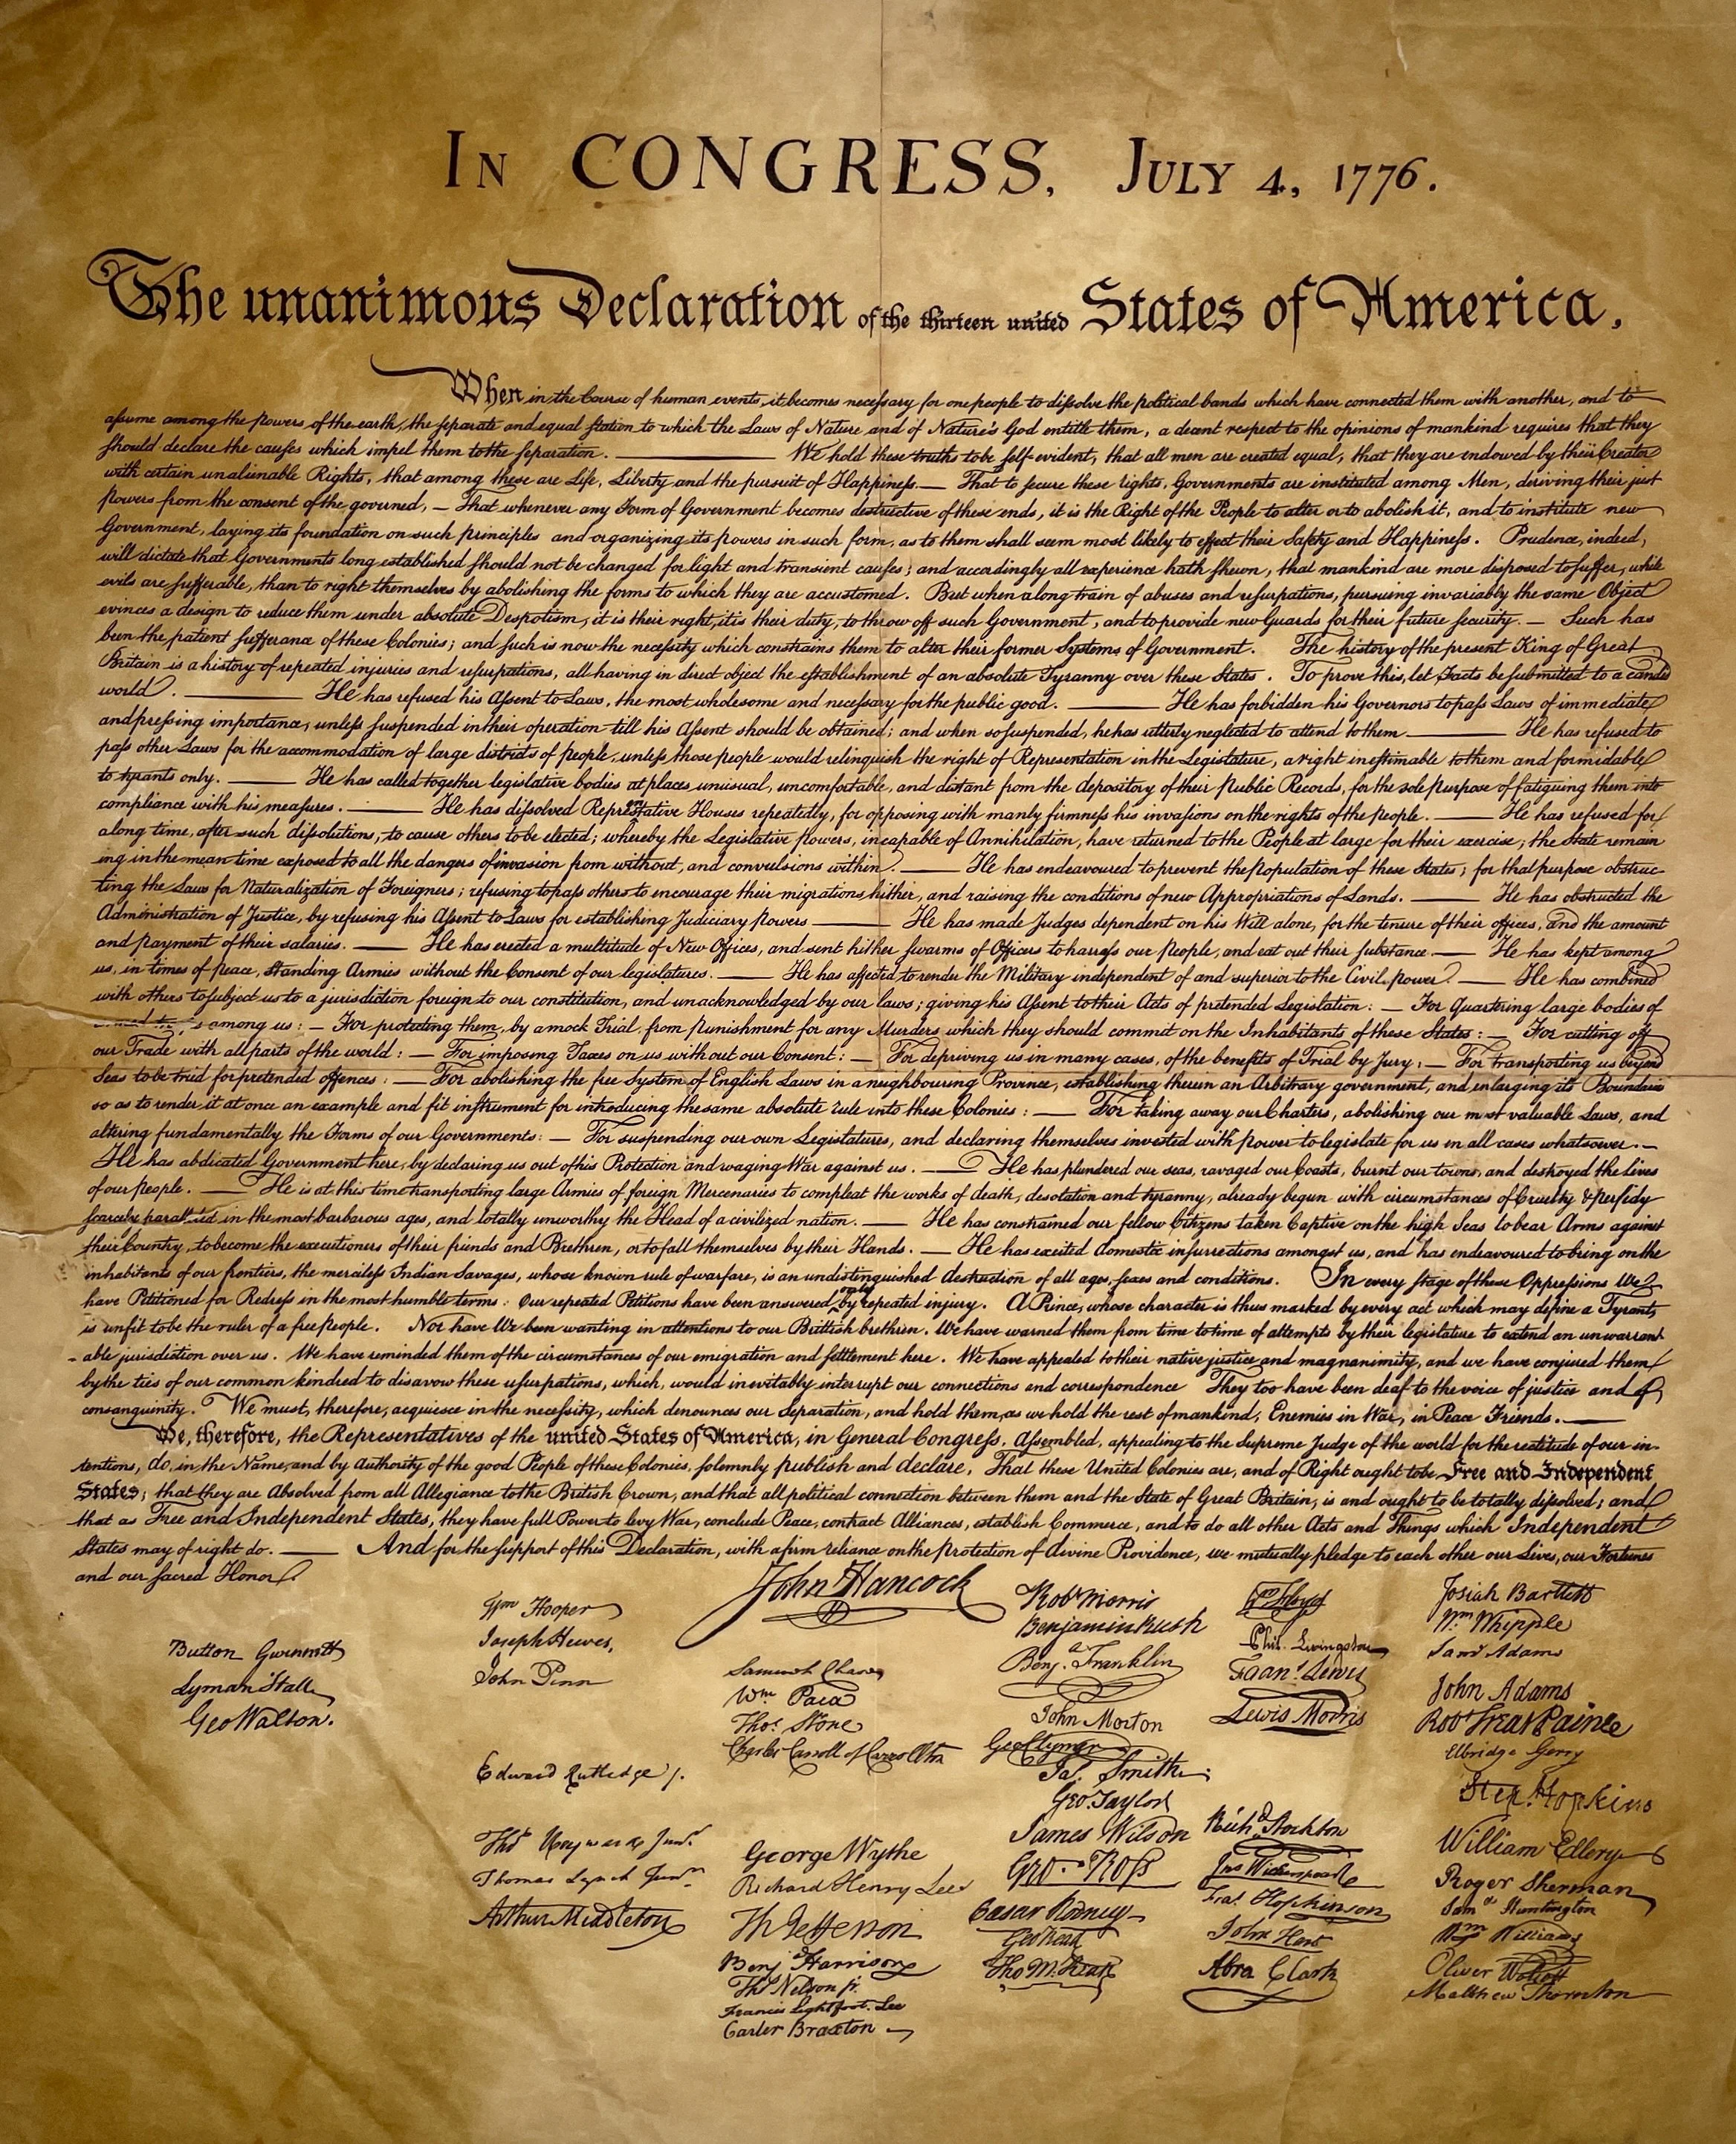 In CONGRESS, July 4, 1776.
The unanimous Declaration of the thirteen united States of America,
When in the Course of human events, it becomes necessary for one people to dissolve the political bands which have connected them with another, and to
assume among the powers of the earth, the separate and equal station to which the Laws of Nature and of Nature's God entitle them, a decent respect to the opinions of mankind requires that they
should declare the causes which impel them to the separation. ——— We hold these truths to be self-evident, that all men are created equal, that they are endowed by their Creator
with certain unalienable Rights, that among these are Life, Liberty and the pursuit of Happiness.— That to secure these rights, Governments are instituted among Men, deriving their just
powers from the consent of the governed, — That whenever any Form of Government becomes destructive of these ends, it is the Right of the People to alter or to abolish it, and to institute new
Government, laying its foundation on such principles and organizing its powers in such form, as to them shall seem most likely to effect their Safety and Happiness. Prudence, indeed,
will dictate that Governments long established should not be changed for light and transient causes; and accordingly all experience hath shewn, that mankind are more disposed to suffer, while
evils are sufferable, than to right themselves by abolishing the forms to which they are accustomed. But when a long train of abuses and usurpations, pursuing invariably the same Object
evinces a design to reduce them under absolute Despotism, it is their right, it is their duty, to throw off such Government, and to provide new Guards for their future security. — Such has
been the patient sufferance of these Colonies; and such is now the necessity which constrains them to alter their former Systems of Government. The history of the present King of Great
Britain is a history of repeated injuries and usurpations, all having in direct object the establishment of an absolute Tyranny over these States. To prove this, let Facts be submitted to a candid
world. ——— He has refused his Assent to Laws, the most wholesome and necessary for the public good. ——— He has forbidden his Governors to pass Laws of immediate
and pressing importance, unless suspended in their operation till his Assent should be obtained; and when so suspended, he has utterly neglected to attend to them. ——— He has refused to
pass other Laws for the accommodation of large districts of people, unless those people would relinquish the right of Representation in the Legislature, a right inestimable to them and formidable
to tyrants only. ——— He has called together legislative bodies at places unusual, uncomfortable, and distant from the depository of their Public Records, for the sole purpose of fatiguing them into
compliance with his measures. ——— He has dissolved Representative Houses repeatedly, for opposing with manly firmness his invasions on the rights of the people. ——— He has refused for
a long time, after such dissolutions, to cause others to be elected; whereby the Legislative powers, incapable of Annihilation, have returned to the People at large for their exercise; the State remain
ing in the mean time exposed to all the dangers of invasion from without, and convulsions within. ——— He has endeavoured to prevent the population of these States; for that purpose obstruc-
ting the Laws for Naturalization of Foreigners; refusing to pass others to encourage their migrations hither, and raising the conditions of new Appropriations of Lands. ——— He has obstructed the
Administration of Justice, by refusing his Assent to Laws for establishing Judiciary powers ——— He has made Judges dependent on his Will alone, for the tenure of their offices, and the amount
and payment of their salaries. ——— He has erected a multitude of New Offices, and sent hither swarms of Officers to harrass our People, and eat out their substance. ——— He has kept among
us, in times of peace, Standing Armies without the Consent of our legislatures. ——— He has affected to render the Military independent of and superior to the Civil power. ——— He has combined
with others to subject us to a jurisdiction foreign to our constitution, and unacknowledged by our laws; giving his Assent to their Acts of pretended Legislation: — For Quartering large bodies of
among us: — For protecting them, by a mock Trial, from punishment for any Murders which they should commit on the Inhabitants of these States: — For cutting off
our Trade with all parts of the world: — For imposing Taxes on us without our Consent: — For depriving us in many cases, of the benefits of Trial by Jury: — For transporting us beyond
Seas to be tried for pretended offences: — For abolishing the free System of English Laws in a neighbouring Province, establishing therein an Arbitrary government, and enlarging its Boundaries
so as to render it at once an example and fit instrument for introducing the same absolute rule into these Colonies: — For taking away our Charters, abolishing our most valuable Laws, and
altering fundamentally the Forms of our Governments: — For suspending our own Legislatures, and declaring themselves invested with power to legislate for us in all cases whatsoever. —
He has abdicated Government here, by declaring us out of his Protection and waging War against us. ——— He has plundered our seas, ravaged our Coasts, burnt our towns, and destroyed the lives
of our people. ——— He is at this time transporting large Armies of foreign Mercenaries to compleat the works of death, desolation and tyranny, already begun with circumstances of Cruelty & perfidy
scarcely paralleled in the most barbarous ages, and totally unworthy the Head of a civilized nation. ——— He has constrained our fellow Citizens taken Captive on the high Seas to bear Arms against
their Country, to become the executioners of their friends and Brethren, or to fall themselves by their Hands. — He has excited domestic insurrections amongst us, and has endeavoured to bring on the
inhabitants of our frontiers, the merciless Indian Savages, whose known rule of warfare, is an undistinguished destruction of all ages, sexes and conditions. In every stage of these Oppressions We
have Petitioned for Redress in the most humble terms: Our repeated Petitions have been answered only by repeated injury. A Prince, whose character is thus marked by every act which may define a Tyrant,
is unfit to be the ruler of a free people. Nor have We been wanting in attentions to our Brittish brethren. We have warned them from time to time of attempts by their legislature to extend an unwarrant
-able jurisdiction over us. We have reminded them of the circumstances of our emigration and settlement here. We have appealed to their native justice and magnanimity, and we have conjured them
by the ties of our common kindred to disavow these usurpations, which, would inevitably interrupt our connections and correspondence They too have been deaf to the voice of justice and of
consanguinity. We must, therefore, acquiesce in the necessity, which denounces our Separation, and hold them, as we hold the rest of mankind, Enemies in War, in Peace Friends. ———
We, therefore, the Representatives of the united States of America, in General Congress, Assembled, appealing to the Supreme Judge of the world for the rectitude of our in-
tentions, do, in the Name, and by Authority of the good People of these Colonies, solemnly publish and declare, That these United Colonies are, and of Right ought to be Free and Independent
States; that they are Absolved from all Allegiance to the British Crown, and that all political connection between them and the State of Great Britain, is and ought to be totally dissolved; and
that as Free and Independent States, they have full Power to levy War, conclude Peace, contract Alliances, establish Commerce, and to do all other Acts and Things which Independent
States may of right do. ——— And for the support of this Declaration, with a firm reliance on the protection of divine Providence, we mutually pledge to each other our Lives, our Fortunes
and our sacred Honor.
Button Gwinnett
Lyman Hall
Geo Walton.
Wm Hooper
Joseph Hewes,
John Penn
Edward Rutledge /.
Thos Heyward Junr
Thomas Lynch Junr
Arthur Middleton
John Hancock
Samuel Chase
Wm Paca
Thos Stone
Charles Carroll of Carrollton
George Wythe
Richard Henry Lee
Th Jefferson
Benj Harrison
Thos Nelson jr.
Francis Lightfoot Lee
Carter Braxton
Robt Morris
Benjamin Rush
Benja. Franklin
John Morton
Geo Clymer
Jas. Smith
Geo. Taylor
James Wilson
Geo. Ross
Caesar Rodney
Geo Read
Tho M:Kean
Wm Floyd
Phil. Livingston
Frans. Lewis
Lewis Morris
Richd Stockton
Jno Witherspoon
Fras. Hopkinson
John Hart
Abra Clark
Josiah Bartlett
Wm Whipple
Saml Adams
John Adams
Robt Treat Paine
Elbridge Gerry
Step. Hopkins
William Ellery
Roger Sherman
Saml Huntington
Wm Williams
Oliver Wolcott
Matthew Thornton